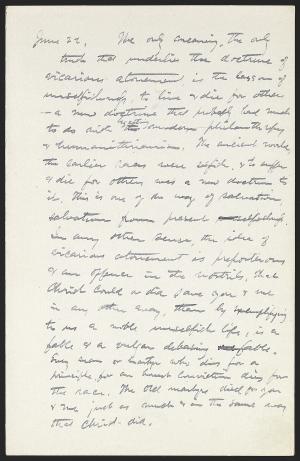 June 22, The only meaning, the only
truth that underlies the doctrine of
vicarious atonement is the lesson of
unselfishness, to live & die for others
— a new doctrine that probably had much
to do with begetting modern philanthropy
& humanitarianism. The ancient world,
the earlier races were selfish, & to suffer
& die for others was a new doctrine to
it. This is one of the ways of salvation,
salvation from present selfishness.
In any other sense, the idea of
vicarious atonement is preposterous
& an offence in the nostrils. That
Christ could or did save you & me
in any other way, than by exemplifying
to us a noble unselfish life, is a
fable & a vulgar debasing fable.
Every man or martyr who dies for a
principle, for an honest conviction dies for
the race. The old martyrs died for you
& me just as much & in the same way
that Christ did.